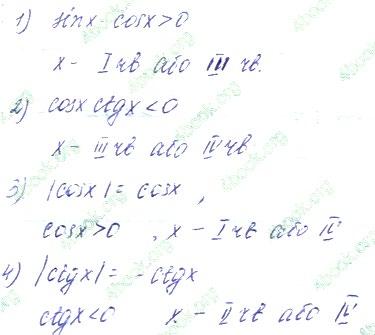 1) sinx · cosx > 0
x - I чв або III чв.
2) cosx ctgx < 0
x - III чв або IV чв
3) |cosx| = cosx,
cosx > 0, x - I чв або IV
4) |ctgx| = - ctgx
ctgx < 0 x - II чв або IV